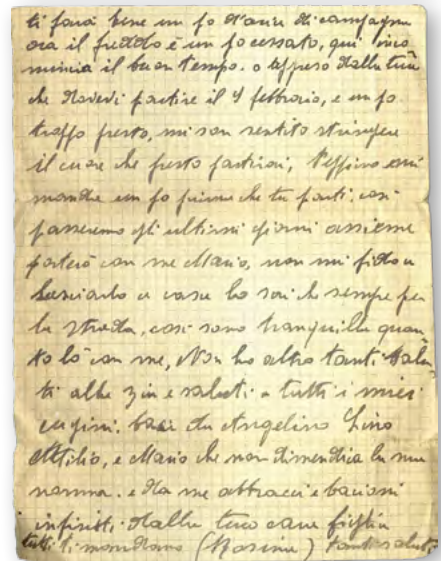 ti farà bene un po d'aria di campagna
ora il freddo è un po cessato, qui inco
mincia il buon tempo. o appreso dalla tua
che dovevi partire il 9 febbraio, e un po
troppo presto, mi son sentito stringere
il cuore che presto partirai, Peppino
mandra un po prima che tu parti, cosi
passeremo gli ultimi giorni assieme
porterò con me Mario, non mi fido a
lasciarlo a casa lo sai che sempre per
la strada, cosi sono tranquilla quan
to lò con me, Non ho altro tanti salu
ti alla zia e saluti a tutti i miei
cugini. baci da Angelino Lino
Attilio, e Mario che non dimendica la sua
nonna. e da me abbracci e bacioni
infiniti. dalla tua cara figlia
tutti ti mandano (Rosina) tanti saluti